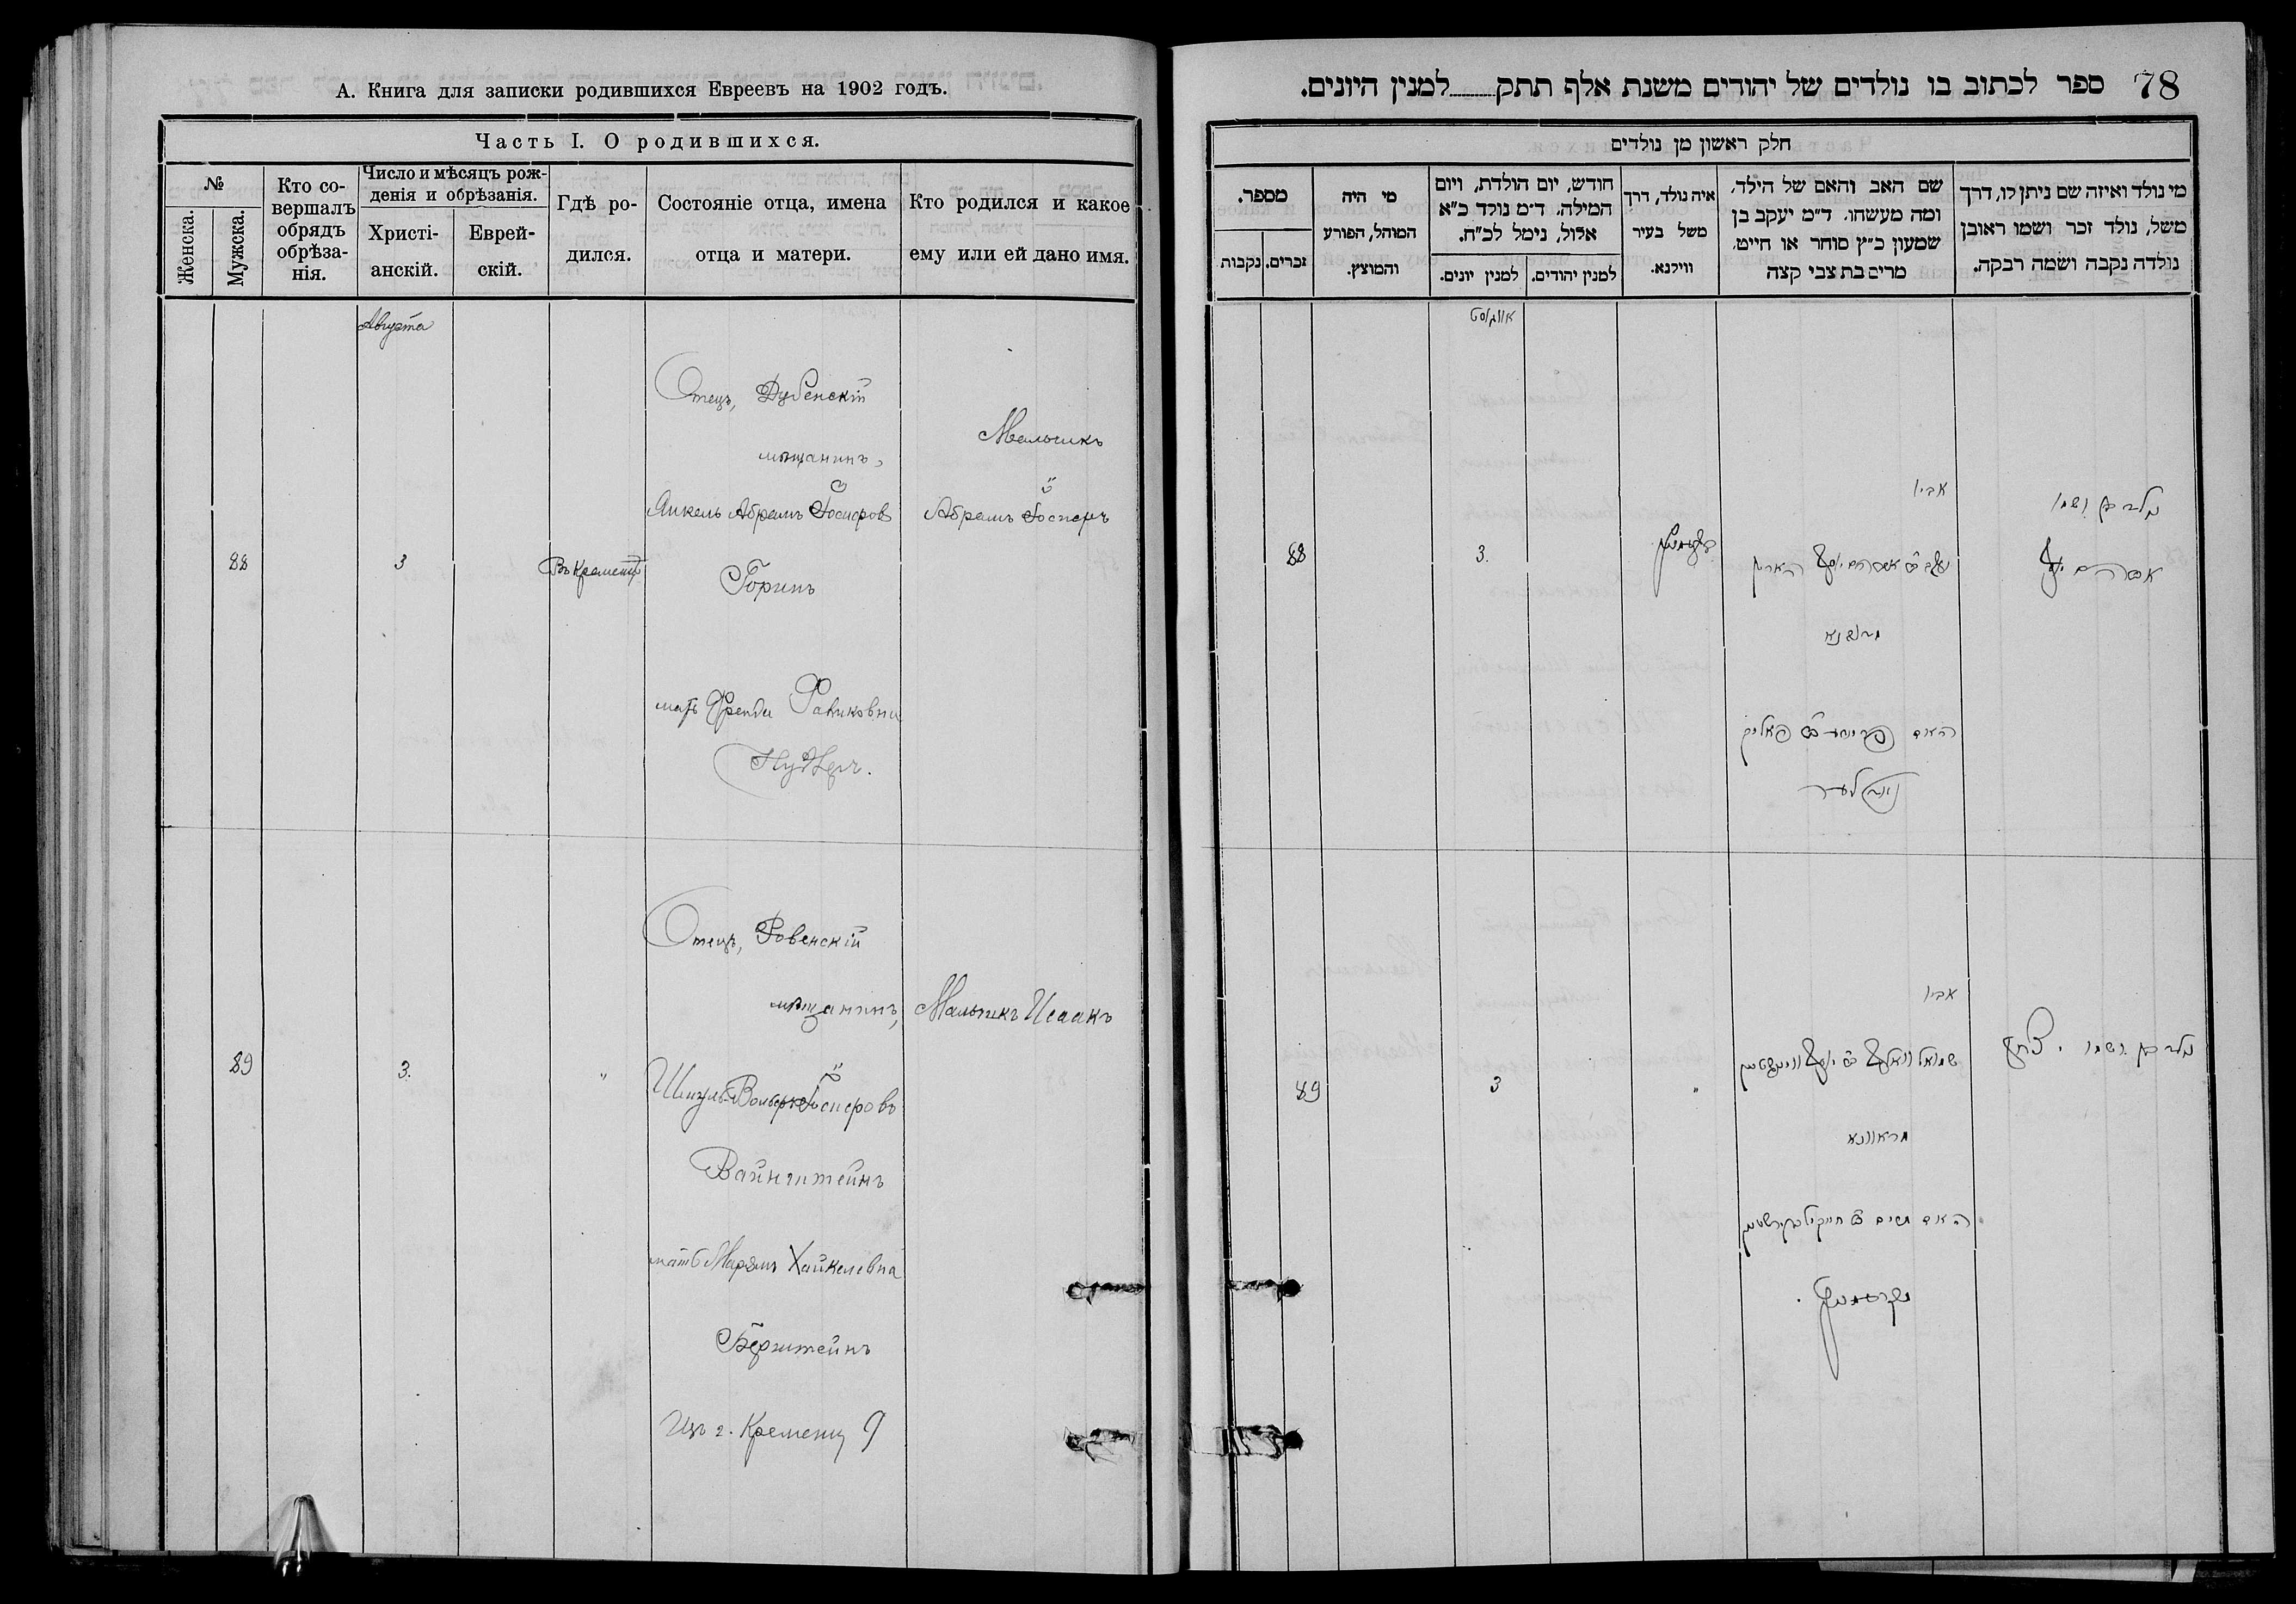 А. Книга для записки родившихся Евреевъ на 1902 годъ.
Часть I. О родившихся.
№
Женска.
Мужска.
Кто со-
вершалъ
обрядъ
обрѣза-
нія.
Число и мѣсяцъ рож-
денія и обрѣзанія.
Христі-
анскій.
Еврей-
скій.
Гдѣ ро-
дился.
Состояніе отца, имена
отца и матери.
Кто родился и какое
ему или ей дано имя.
Августа
Отецъ, Дубенскій
мѣщанинъ,
Янкель Абрамъ Іосиров
Горинъ
мать Френда
88
3
Въ Кременцѣ
Мальчикъ
Абрамъ Іосиеръ
Отецъ, Ровенскій
мѣщанинъ,
Шмуль-Вольфъ Іосиеровъ
Вайнштейнъ
мать Марямъ Хайкелевна
Берштейнъ
Изъ г. Кременца
89
3.
"
Мальчикъ Исаакъ
78
ספר לכתוב בו נולדים של יהודים משנת אלף תתק למנין היונים.
חלק ראשון מן נולדים
מי נולד ואיזה שם ניתן לו, דרך
משל, נולד זכר ושמו ראובן
נולדה נקבה ושמה רבקה.
שם האב והאם של הילד,
ומה מעשהו. ד״מ יעקב בן
שמעון כ״ץ סוחר או חייט,
מרים בת צבי קצה
איה נולד, דרך
משל בעיר
ווילנא.
חודש, יום הולדת, ויום
המילה. ד״מ נולד כ״א
אלול, נימל לכ״ח.
למנין יהודים.
למנין יונים.
מי היה
המוהל, הפורע
והמוצץ.
מספר.
זכרים.
נקבות
אווגוסט
אביו
אברהם יוסף
האם
88
3.
אביו
שמואל וואלף ב״ר יוסף וויינשטיין
מראוונא
האם מרים ב״ר חייקיל בערשטיין
מקרעמניץ
ושמו יצחק
89
3
"